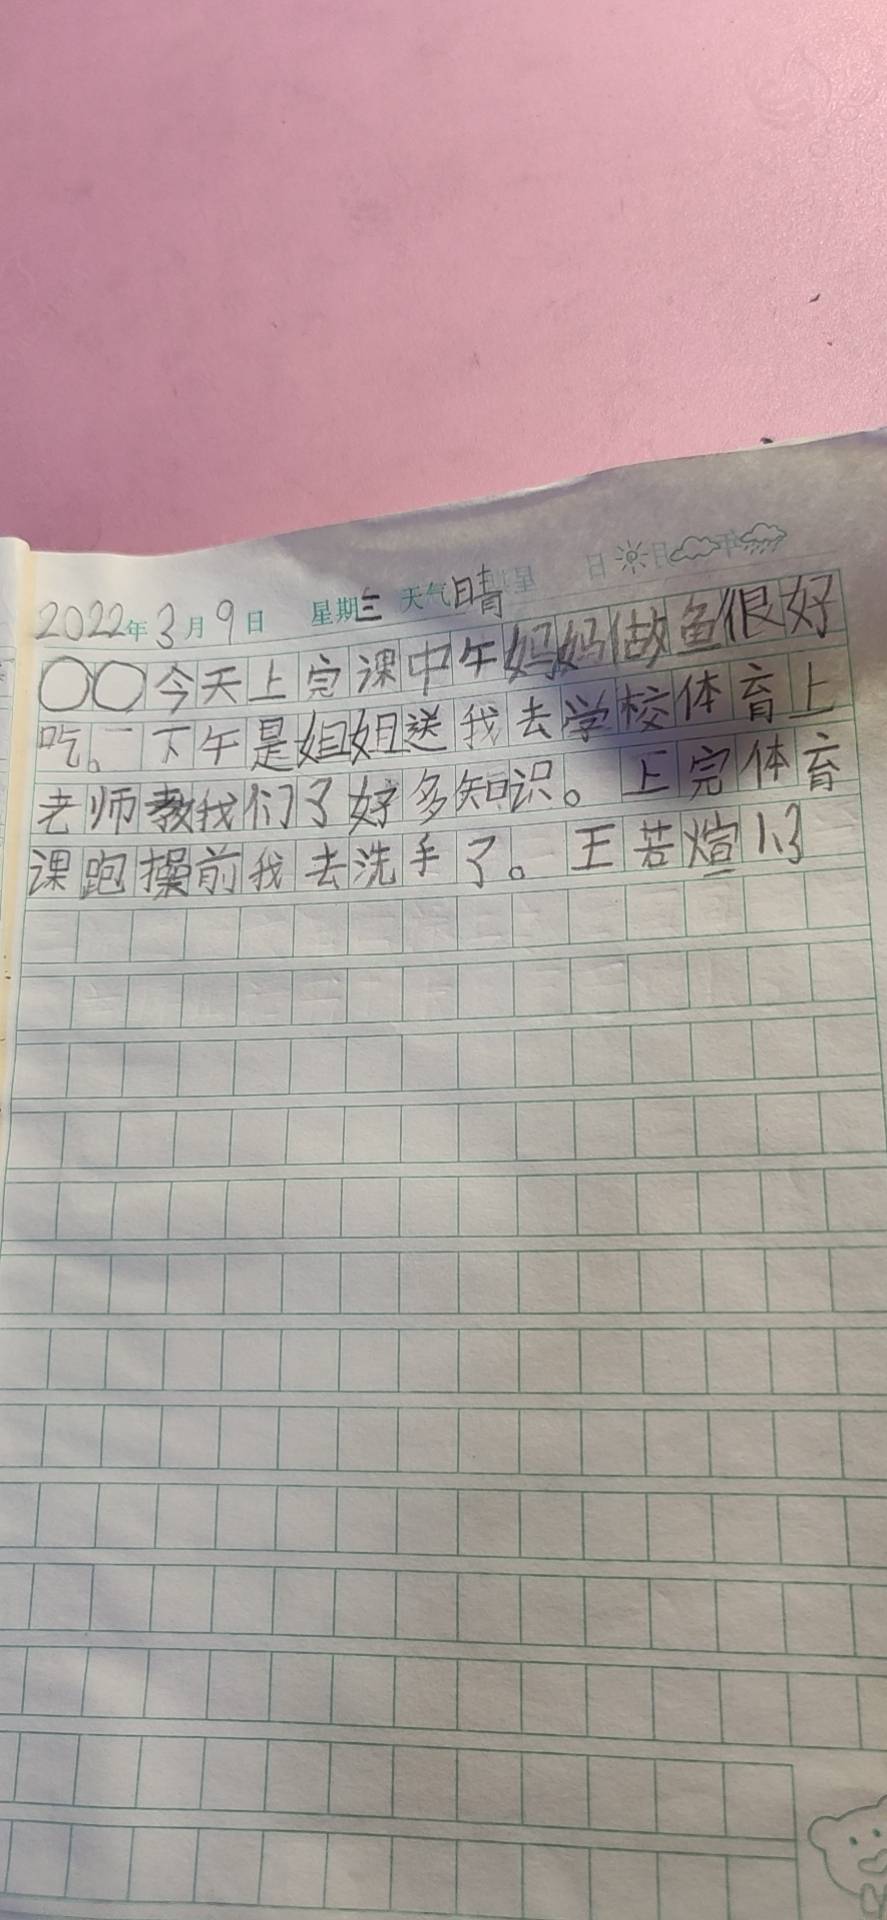 2022年3月9日 星期三 天气晴
○○今天上完课中午妈妈做鱼很好
吃。下午是姐姐送我去学校体育上
老师教我们了好多知识。上完体育
课跑操前我去洗手了。王若煊1.3